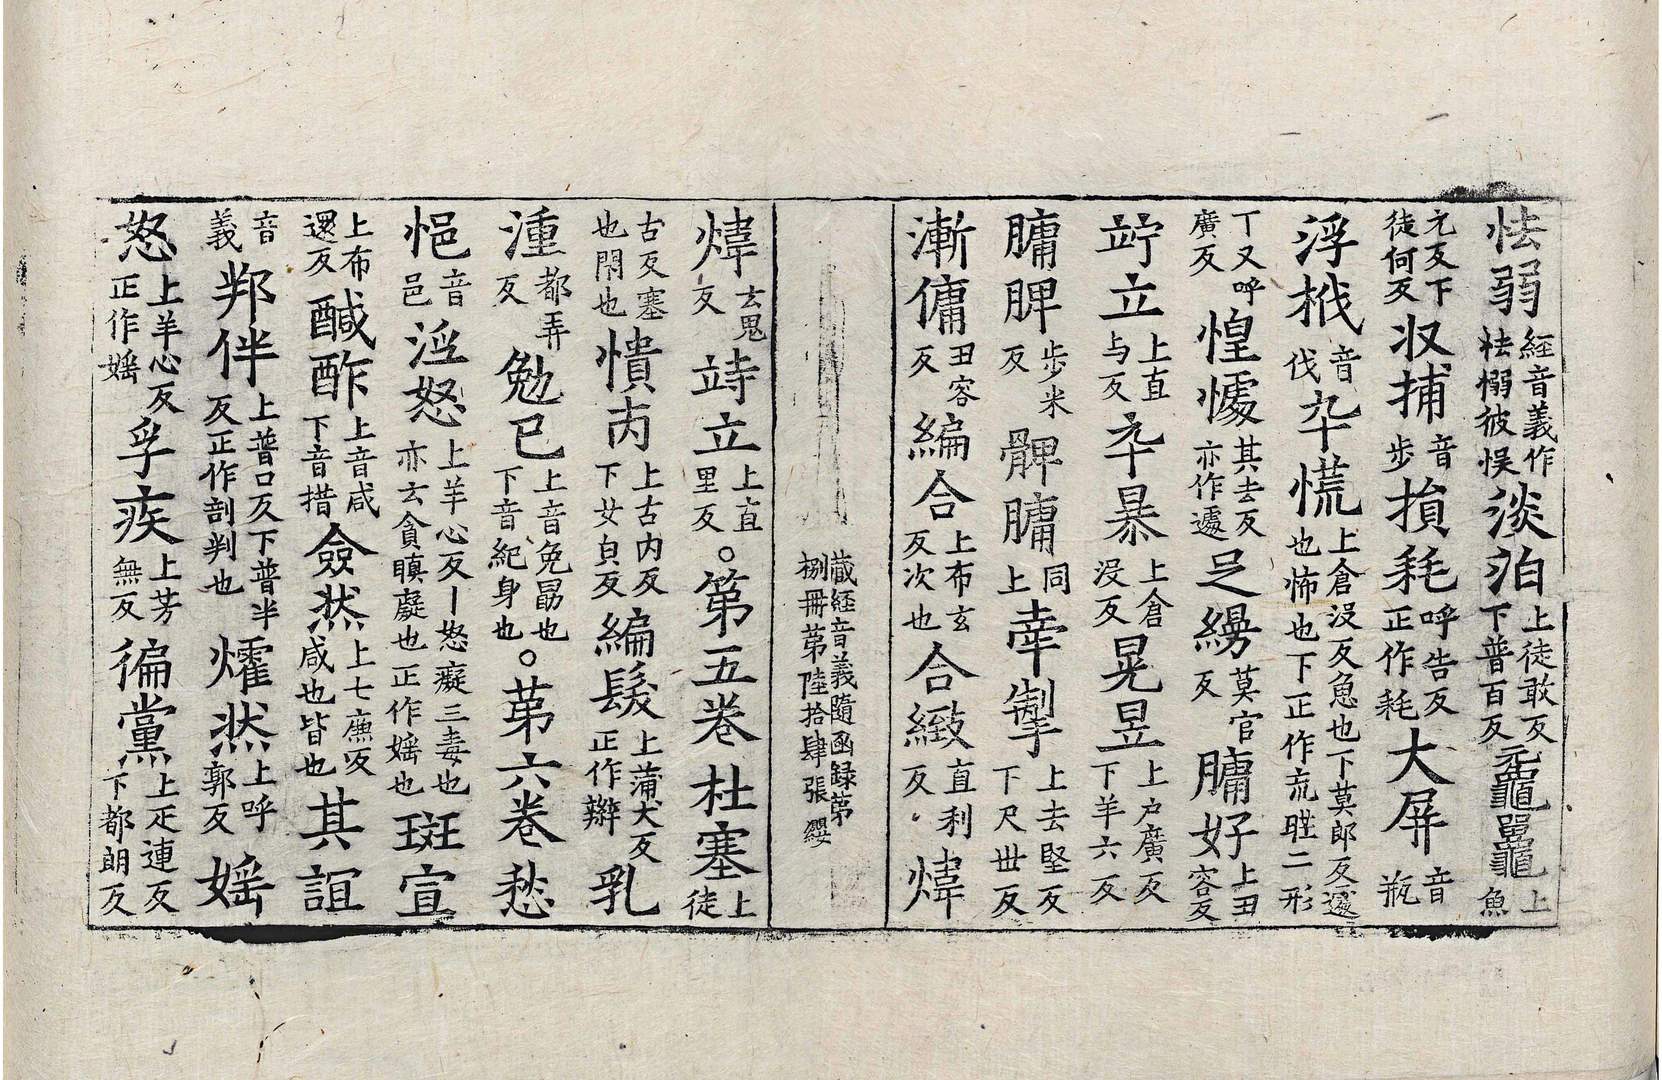 怯弱經音義作怯㥾彼悮淡泊上徒敢反下普百反黿鼉上魚
元反下徒何反收捕音步損耗呼告反正作耗大屏音瓶
浮栰音伐卒慌上倉沒反急也下莫郎反遽也怖也下正作㡃𥇀二形
丁又呼廣反惶懅其去反亦作遽足縵莫官反𦟛好上丑容反
竚立上直与反卒暴上倉浸反晃昱上戶廣反下羊六反
𦟛脾步米反髀𦟛同上牽掣上去堅反下尺世反
漸傭丑容反編合上布玄反次也合緻直利反煒
藏經音義隨函錄第捌冊第陸拾肆張 纓
煒玄鬼反歭立上直里反。第五卷杜塞上徒
古反塞也閇也憒丙上古內反下女皃反編髮上蒲犬反正作辮乳
湩都弄反勉已上音免勗也下音紀身也。第六卷愁
悒音邑婬怒上羊心反丨怒癡三毒也亦云貪瞋癡也正作婬也斑宣
上布還反醎酢上音咸下音措僉然上七廉反咸也皆也其誼
音義㓟伴上普口反下普半反正作剖判也㸌然上呼郭反婬
怒上羊心反正作婬孚疾上芳無反徧黨上疋連反下都朗反